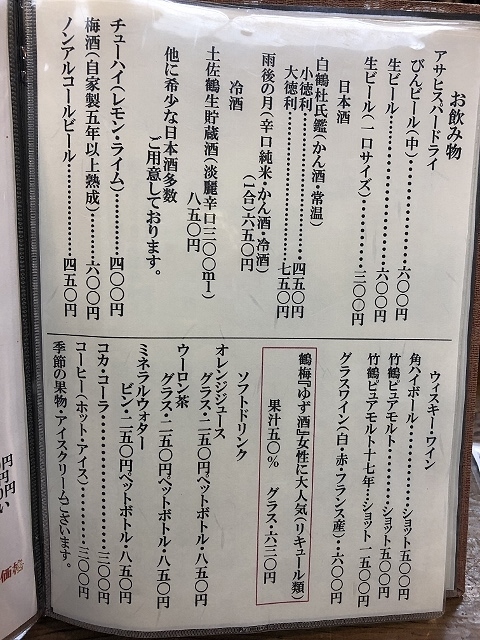 お飲み物
アサヒスパードライ
びんビール(中)…………六〇〇円
生ビール………………………六〇〇円
生ビール(一口サイズ)………三〇〇円
日本酒
白鶴杜氏鑑(かん酒・常温)
小徳利………………………四五〇円
大徳利………………………七五〇円
雨後の月(辛口純米・かん酒・冷酒)
(1合)六五〇円
冷酒
土佐鶴生貯蔵酒(淡麗辛口三〇〇ml)
八五〇円
他に希少な日本酒多数
ご用意しております。
チューハイ(レモン・ライム)………四〇〇円
梅酒(自家製五年以上熟成)………六〇〇円
ノンアルコールビール…………四五〇円
ウィスキー・ワイン
角ハイボール…………ショット五〇〇円
竹鶴ピュアモルト………ショット五〇〇円
竹鶴ピュアモルト十七年…ショット一五〇〇円
グラスワイン(白・赤・フランス産)・・六〇〇円
鶴梅『ゆず酒』女性に大人気(リキュール類)
果汁五〇% グラス・六三〇円
ソフトドリンク
オレンジジュース
グラス・二五〇円ペットボトル・八五〇円
ウーロン茶
グラス・二五〇円ペットボトル・八五〇円
ミネラルウォター
ビン・二五〇円ペットボトル・八五〇円
コカ・コーラ…………………三〇〇円
コーヒー(ホット・アイス)………三〇〇円
季節の果物・アイスクリームございます。
円
円
円
い
価格